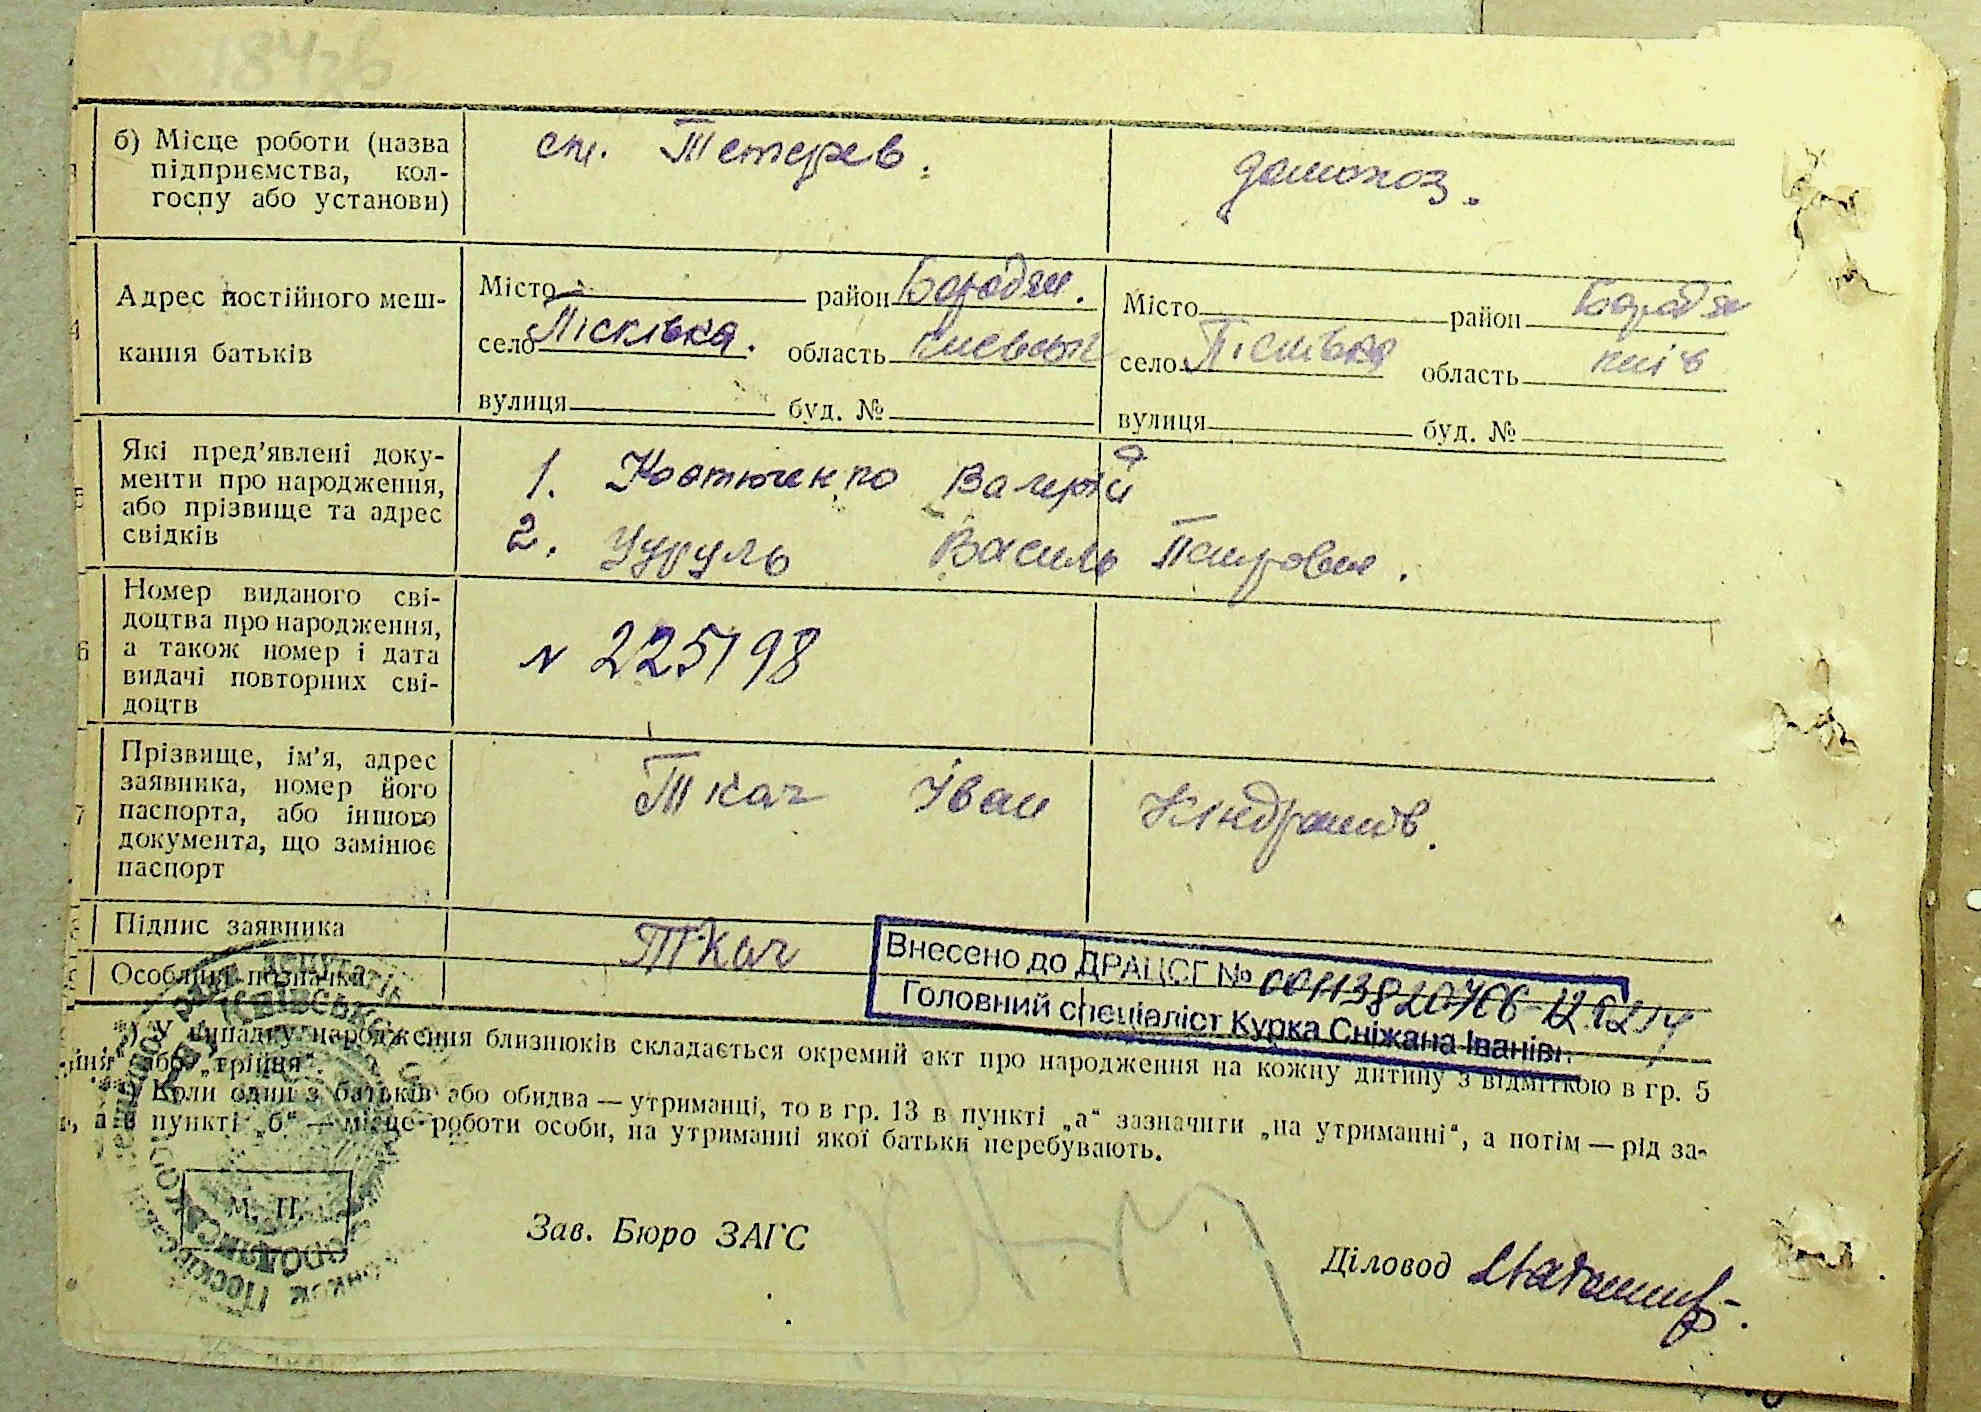 184зв
б) Місце роботи (назва
підприємства, кол-
госпу або установи)
ст. Тетерев.
домогоз.
Адрес постійного меш-
кання батьків
Місто район Бородян.
село Пісківка. область Киевськ
вулиця буд. №
Місто район Бородян
село Пісківка область Київ
вулиця буд. №
Які пред'явлені доку-
менти про народження,
або прізвище та адрес
свідків
1. Костюченко Валерій
2. Василь Петрович.
Номер виданого сві-
доцтва про народження,
а також номер і дата
видачі повторних сві-
доцтв
N 225198
Прізвище, ім'я, адрес
заявника, номер його
паспорта, або іншого
документа, що замінює
паспорт
Ткач Іван Кіндратов.
Підпис заявника
Ткач
Особливі позначки
Внесено до ДРАЦСГ №
Головний спеціаліст Курка Сніжана Іванівн.
*) У випадку народження близнюків складається окремий акт про народження на кожну дитину з відміткою в гр. 5
або „трійня“.
Коли один з батьків або обидва — утриманці, то в гр. 13 в пункті „а“ зазначити „на утриманні“, а потім — рід за-
а в пункті „б“ — місце роботи особи, на утриманні якої батьки перебувають.
М. П.
Зав. Бюро ЗАГС
Діловод